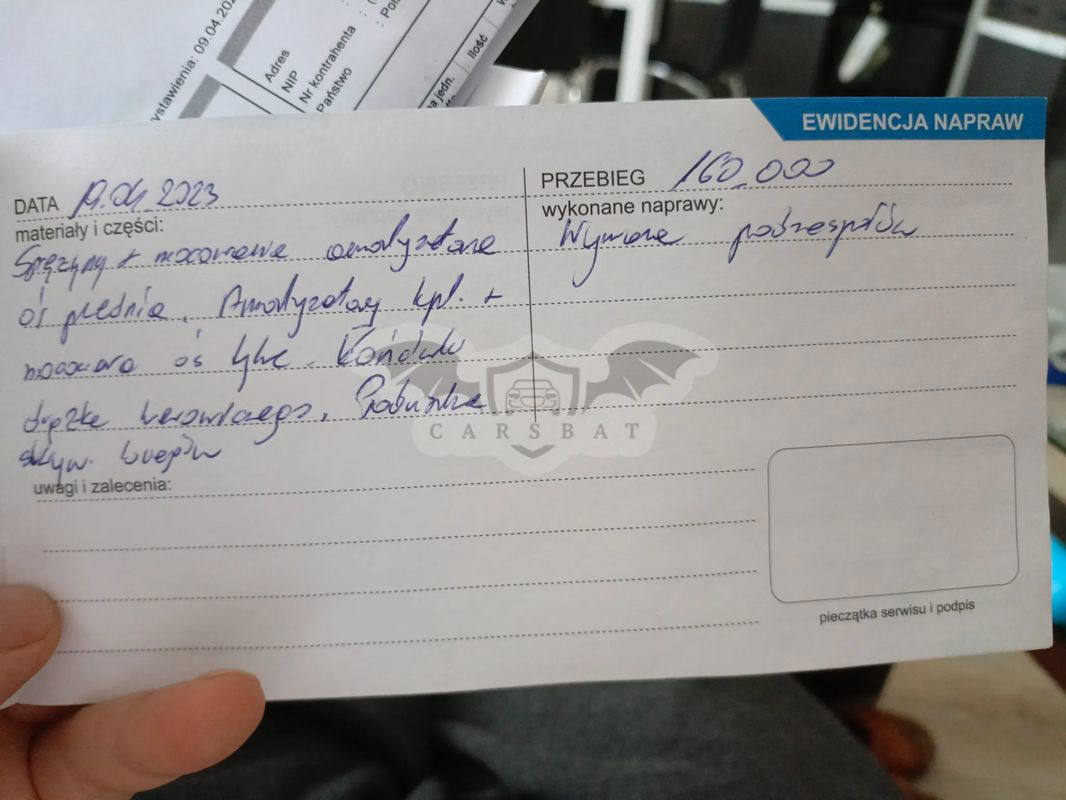 ystawienia: 09.04.20
Adres
NIP
Nr kontrahenta
Państwo
: Pol
na jedn.
Ilość
EWIDENCJA NAPRAW
DATA 19.04.2023
PRZEBIEG 160.000
materiały i części:
wykonane naprawy:
Sprężyny + mocowanie amortyzatora
Wymiana podzespołów
oś przednia. Amortyzatory kpl. +
mocowania oś tylna. Końcówka
drążka kierowniczego.
uwagi i zalecenia:
CARSBAT
pieczątka serwisu i podpis